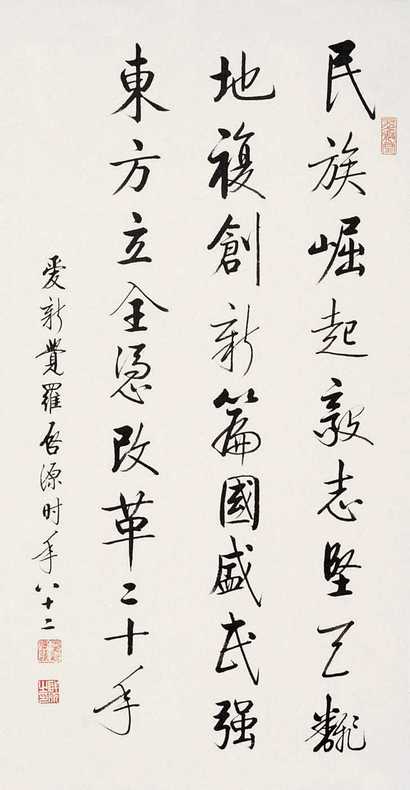 民族崛起毅志坚天翻
地複創新篇國盛民强
東方立全憑改革二十年
愛新覺羅启源时年八十二